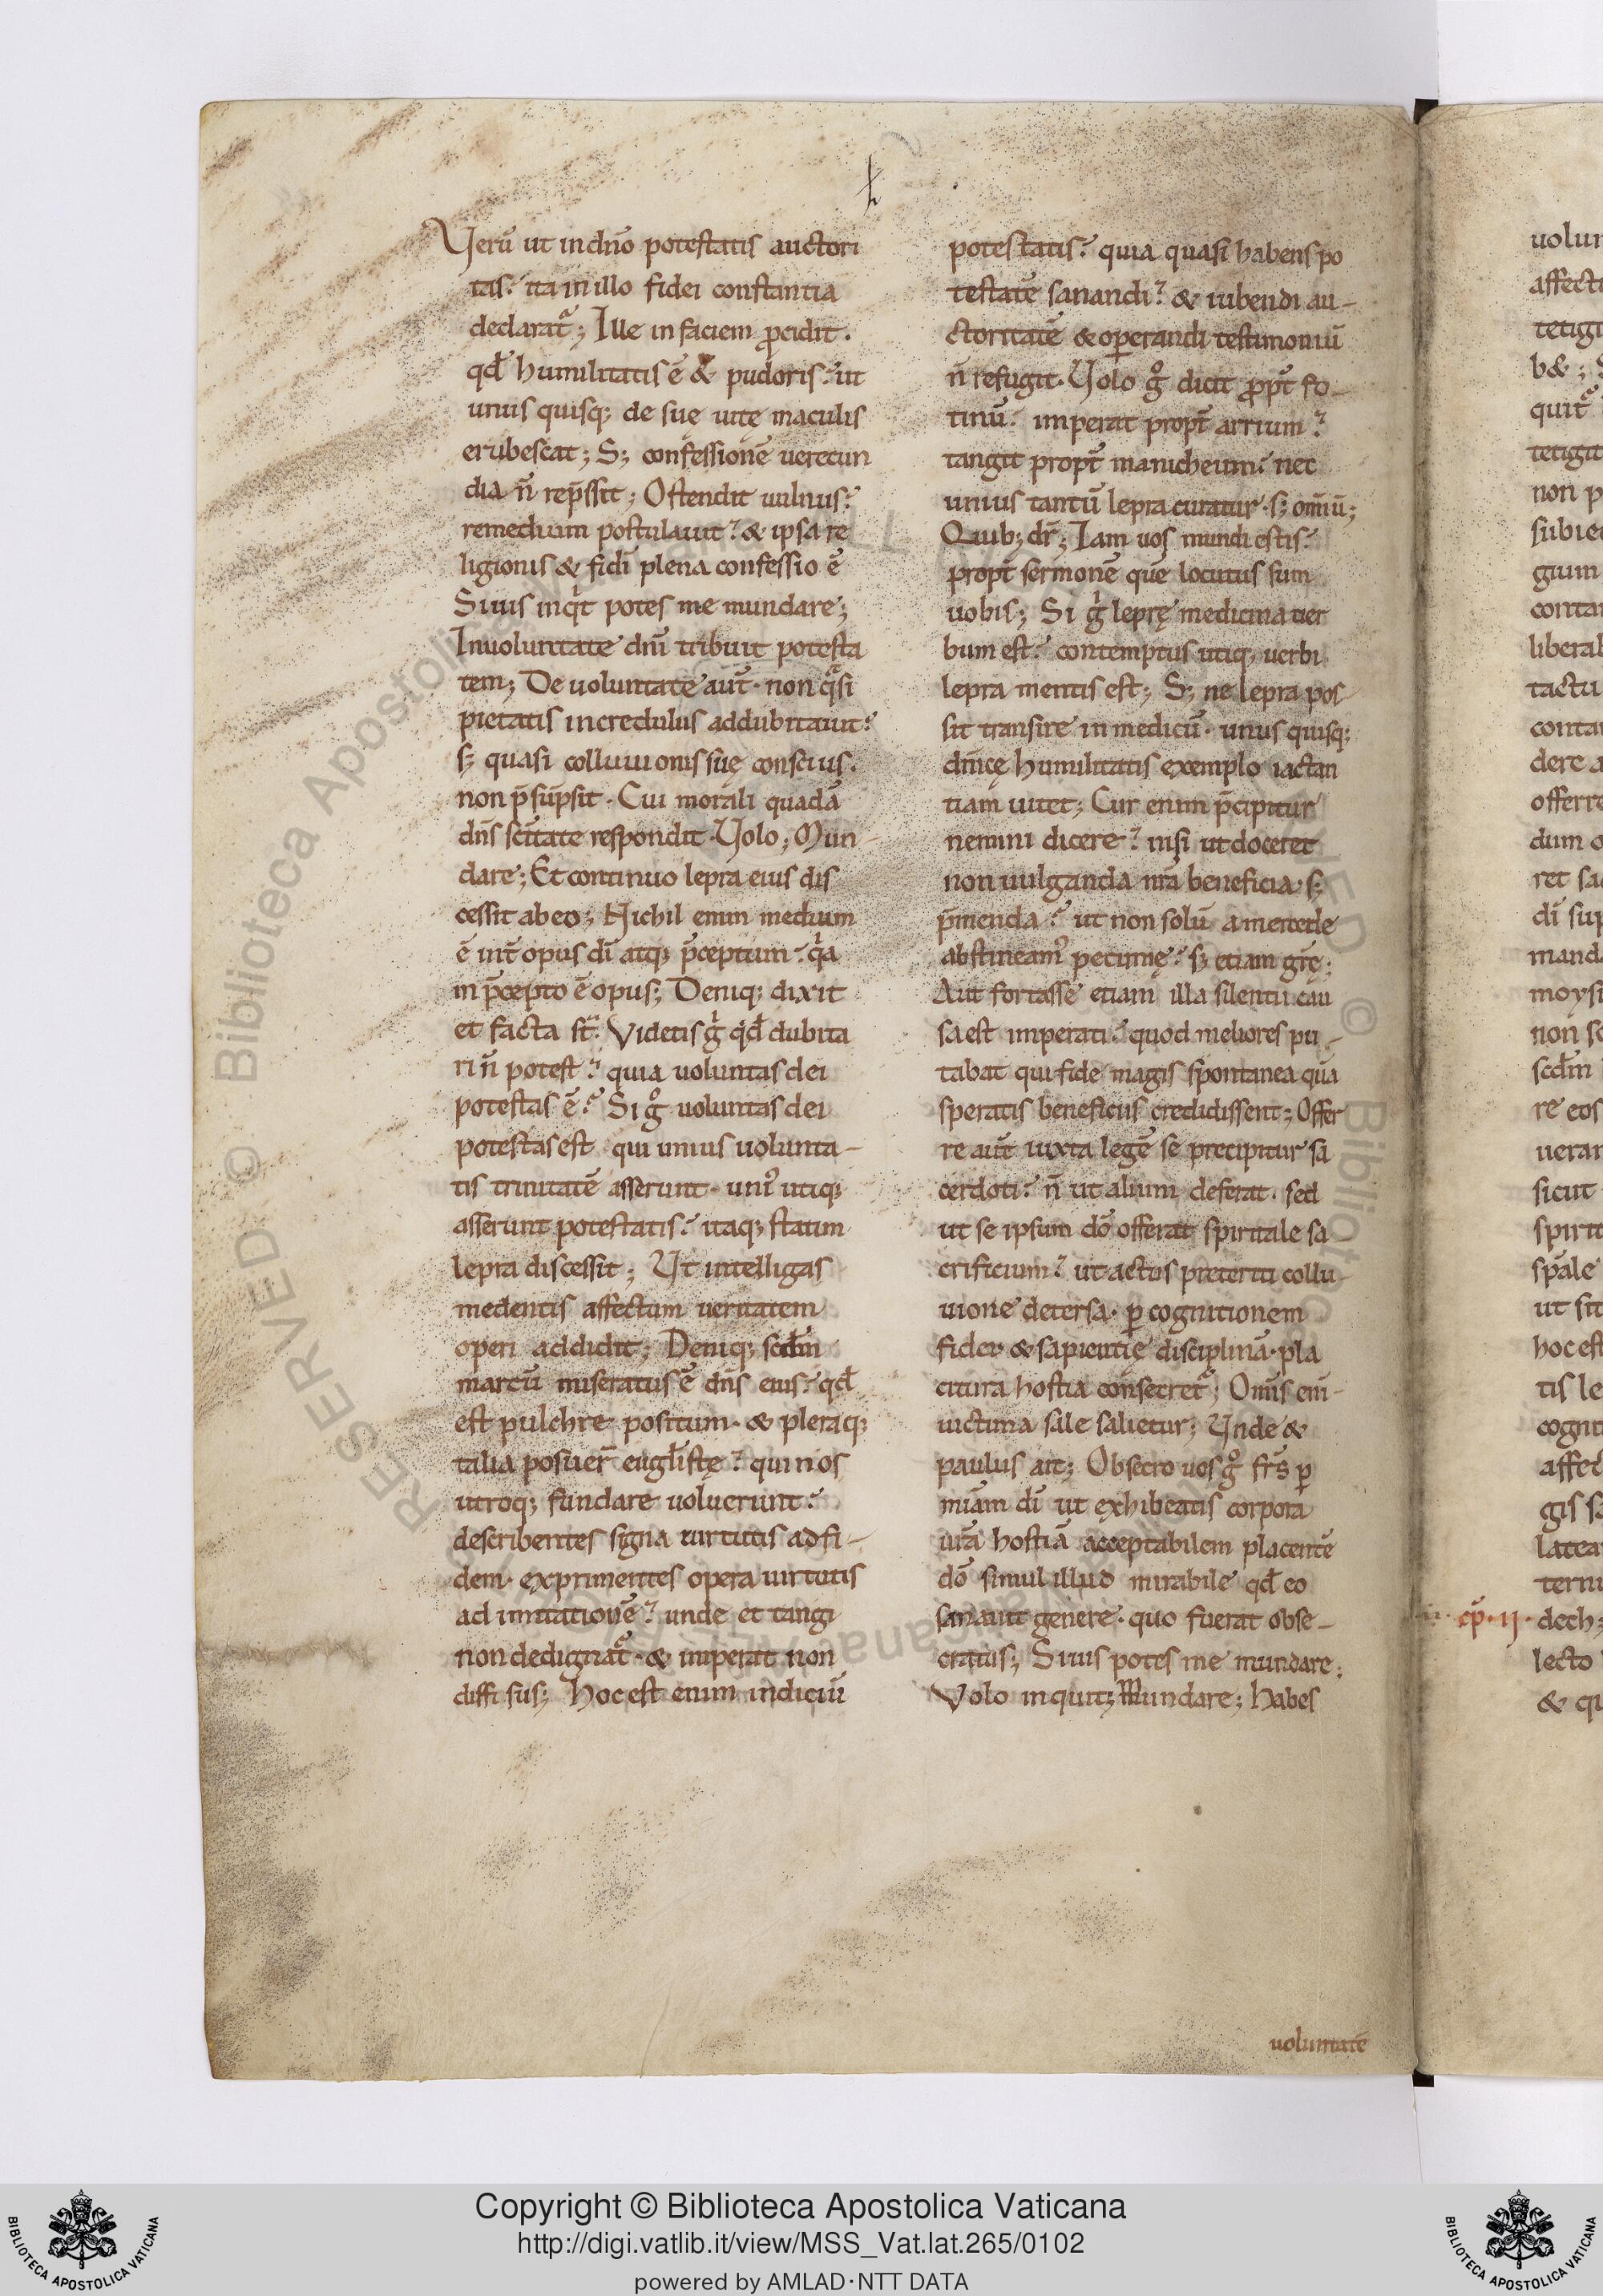 Verū ut in dn̄o potestatis auctori
tas.᾿ ita in illo fidei constantia
declarat᷑; Ille in faciem p̱cidit.
qd̄ humilitatis ē & pudoris.᾿ ut
unus quisq; de suę uitę maculis
erubescat; S; confessionē uerecun
dia n̄ rep̄ssit; Ostendit uulnus.᾿
remedium postulauit.᾿ & ipsa re
ligionis & fidi plena confessio ē
Si uis inqͥt potes me mundare;
In uoluntate dn̄i tribuit potesta
tem; De uoluntate aut̄. non qͣsi
pietatis incredulus addubitauit.᾿
s; quasi colluuionis suę conscius.
non p̄sūpsit. Cui morali quadā
dn̄s scītate respondit. Volo; Mun-
dare; Et continuo lepra eius dis
cessit ab eo; Nichil enim medium
ē int̄ opus dī atq; p̄ceptum.᾿ qͥa
in p̄cepto ē opus; Deniq; dixit
et facta st̄.᾿ Videtis gͥ qd̄ dubita
ri n̄ potest.᾿ quia uoluntas dei
potestas ē.᾿ Si gͦ uoluntas dei
potestas est qui unius uolunta-
tis trinitatē asserunt. uni᾿ utiq;
asserunt potestatis.᾿ itaq; statim
lepra discessit; Vt intelligas
medentis affectum ueritatem
operi addidit; Deniq; scd̄m
marcū miseratus ē dn̄s eius.᾿ qd̄
est pulchre positum. & pleraq;
talia posuer̄ eugl̄istę.᾿ qui nos
utroq; fundare uoluerunt.᾿
describentes signa uirtutis ad fi-
dem. exprimentes opera uirtutis
ad imitationē.᾿ unde et tangi
non dedignat᷑. & imperat non
diffisus; Hoc est enim indiciū
potestatis.᾿ quia quasi habens po
testatē sanandi.᾿ & iubendi au-
ctoritatē & operandi testimoniū
n̄ refugit. Volo gͦ dicit p̱pt̄ fo-
tinū.᾿ imperat propt̄ arrium.᾿
tangit propt̄ manicheum.᾿ nec
unius tantū lepra curatur. s; omīu;
Quib; dr̄; Iam uos mundi estis.᾿
propt̄ sermonē quē locutus sum
uobis; Si gͥ leprę medicina uer
bum est.᾿ contemptus utiq; uerbi
lepra mentis est; S; ne lepra pos
sit transire in medicū. unus quisq;
dn̄icę humilitatis exemplo iactan
tiam uitet; Cur enim p̄cipitur
nemini dicere.᾿ nisi ut doceret
non uulganda nr̄a beneficia. s;
p̄menda.᾿ ut non solū a mercede
abstineam᾿ pecunię.᾿ s; etiam grę̄;
Aut fortasse etiam illa silentii cau
sa est imperati.᾿ quod meliores pu-
tabat qui fide magis spontanea quā
speratis beneficiis credidissent; Offer
re aut̄ iuxta legē se precipitur sa
cerdoti.᾿ n̄ ut alium deferat. sed
ut se ipsum dō offerat spiritale sa
crificium.᾿ ut actus preteriti collu-
uione detersa. p̱ cognitionem
fidei & sapientię disciplinā. pla
citura hostia consecret᷑; Omīs eni-
uictima sale salietur; Vnde &
paulus ait; Obsecro uos gͦ fr̄s p̱
miām dī ut exhibeatis corpora
ur̄a hostiā acceptabilem placentē
dō simul illud mirabile qd̄ eo
sanauit genere. quo fuerat obse-
cratus; Si uis potes me mundare;
Volo inquit; Mundare; habes
uoluntatē
ep̄. II.
Copyright © Biblioteca Apostolica Vaticana
http://digi.vatlib.it/view/MSS_Vat.lat.265/0102
powered by AMLAD·NTT DATA
BIBLIOTECA APOSTOLICA VATICANA
BIBLIOTECA APOSTOLICA VATICANA